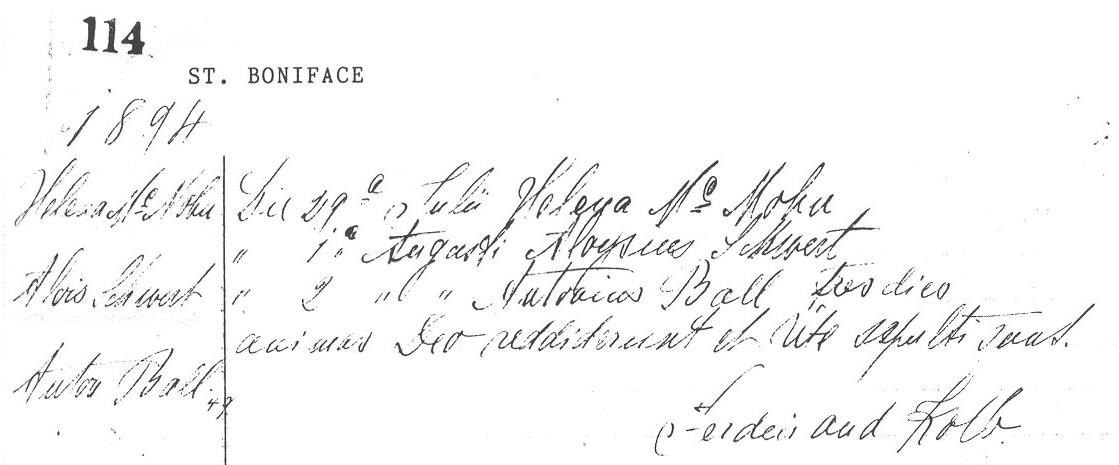 114
ST. BONIFACE
1894
Helena Mc Mohn Die 29a Julii Helena Mc Mohn
" 1a Augusti Aloysius Schwert
Alois Schwert " 2 " " Antonius Ball tres dies
animas Deo reddiderunt et rite sepulti sunt.
Anton Ball
Ferdinand Kolb